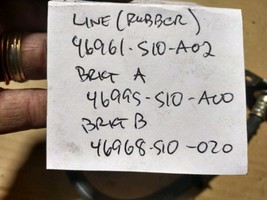 LINE (RUBBER)
46961-S10-A02
BRKT A
46995-S10-A00
BRKT B
46968-S10-020